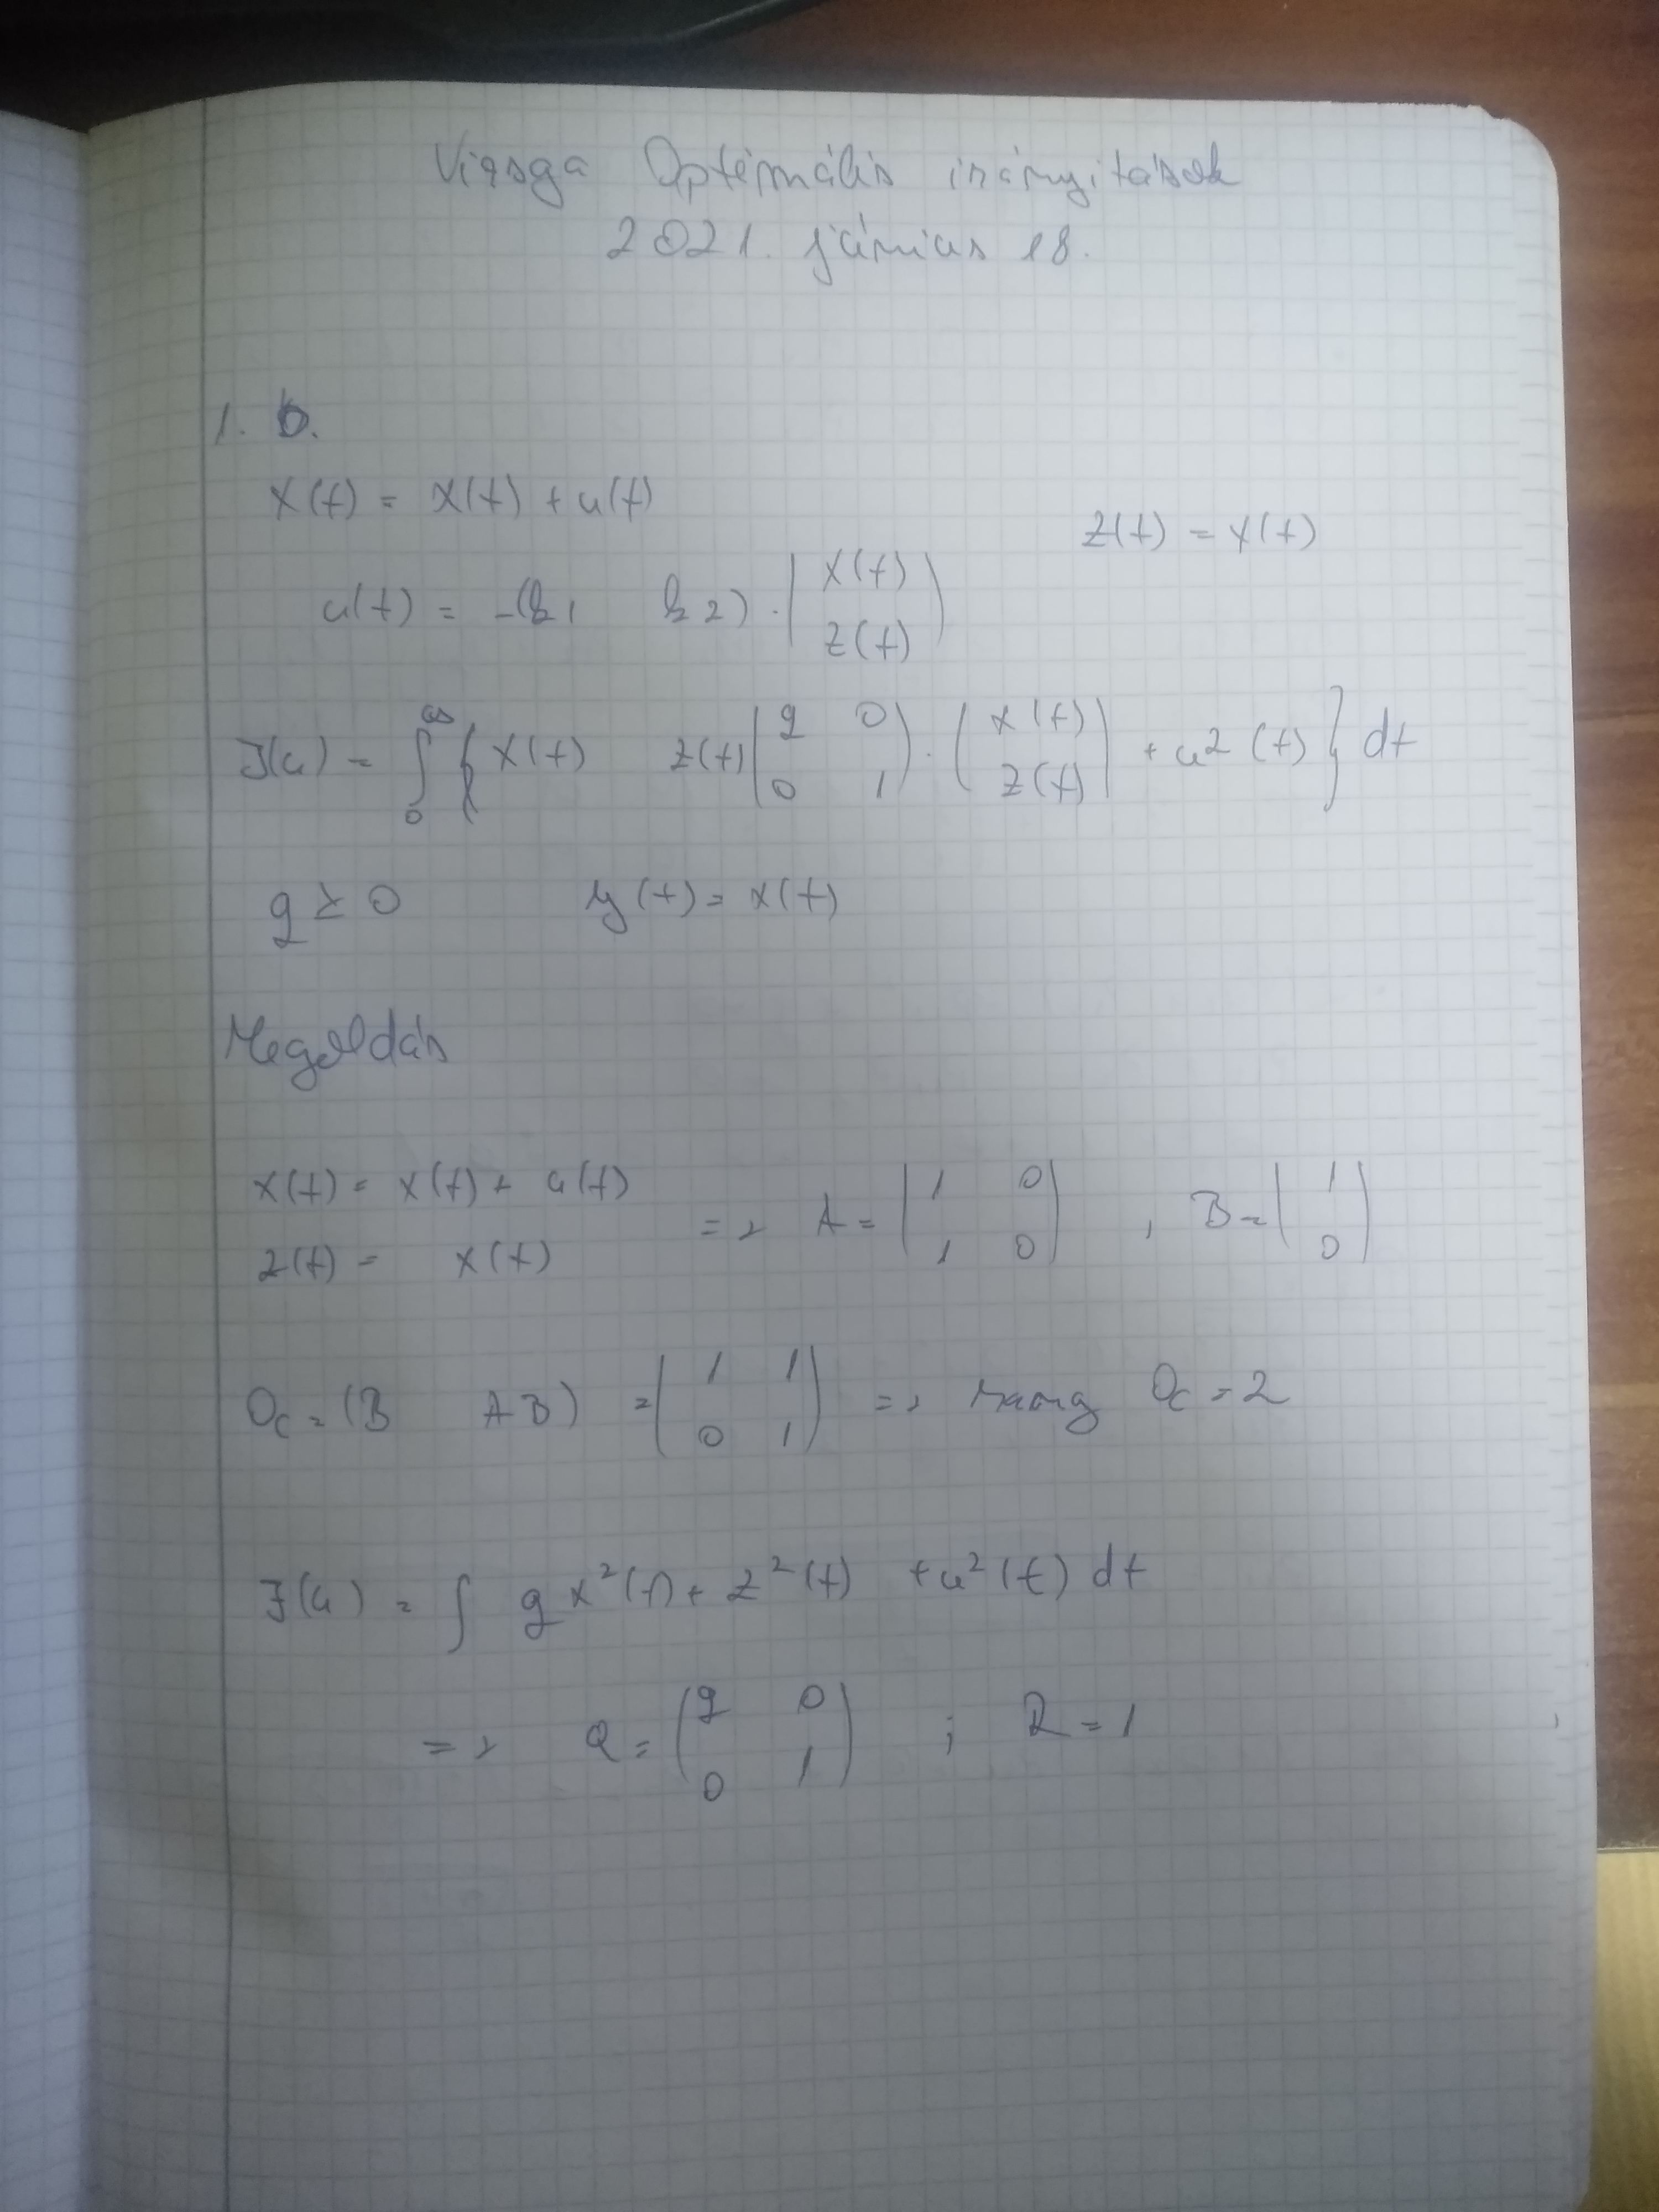 Vizsga Optimális irányítások
2021. június 18.
1. b.
x(t) = x(t) + u(t)
z(t) = y(t)
u(t) = -(k1 k2) · (x(t) z(t))
J(u) = ∫0∞ { x(t) z(t) (q 0 0 1) · (x(t) z(t)) + u² (t) } dt
q ≥ 0 y(t) = x(t)
Megoldás
x(t) = x(t) + u(t)
z(t) = x(t)
=> A = (1 0 1 0), B = (1 0)
Oc = (B AB) = (1 1 0 1) => rang Oc = 2
J(u) = ∫ q x²(t) + z²(t) + u²(t) dt
=> Q = (q 0 0 1) ; R = 1